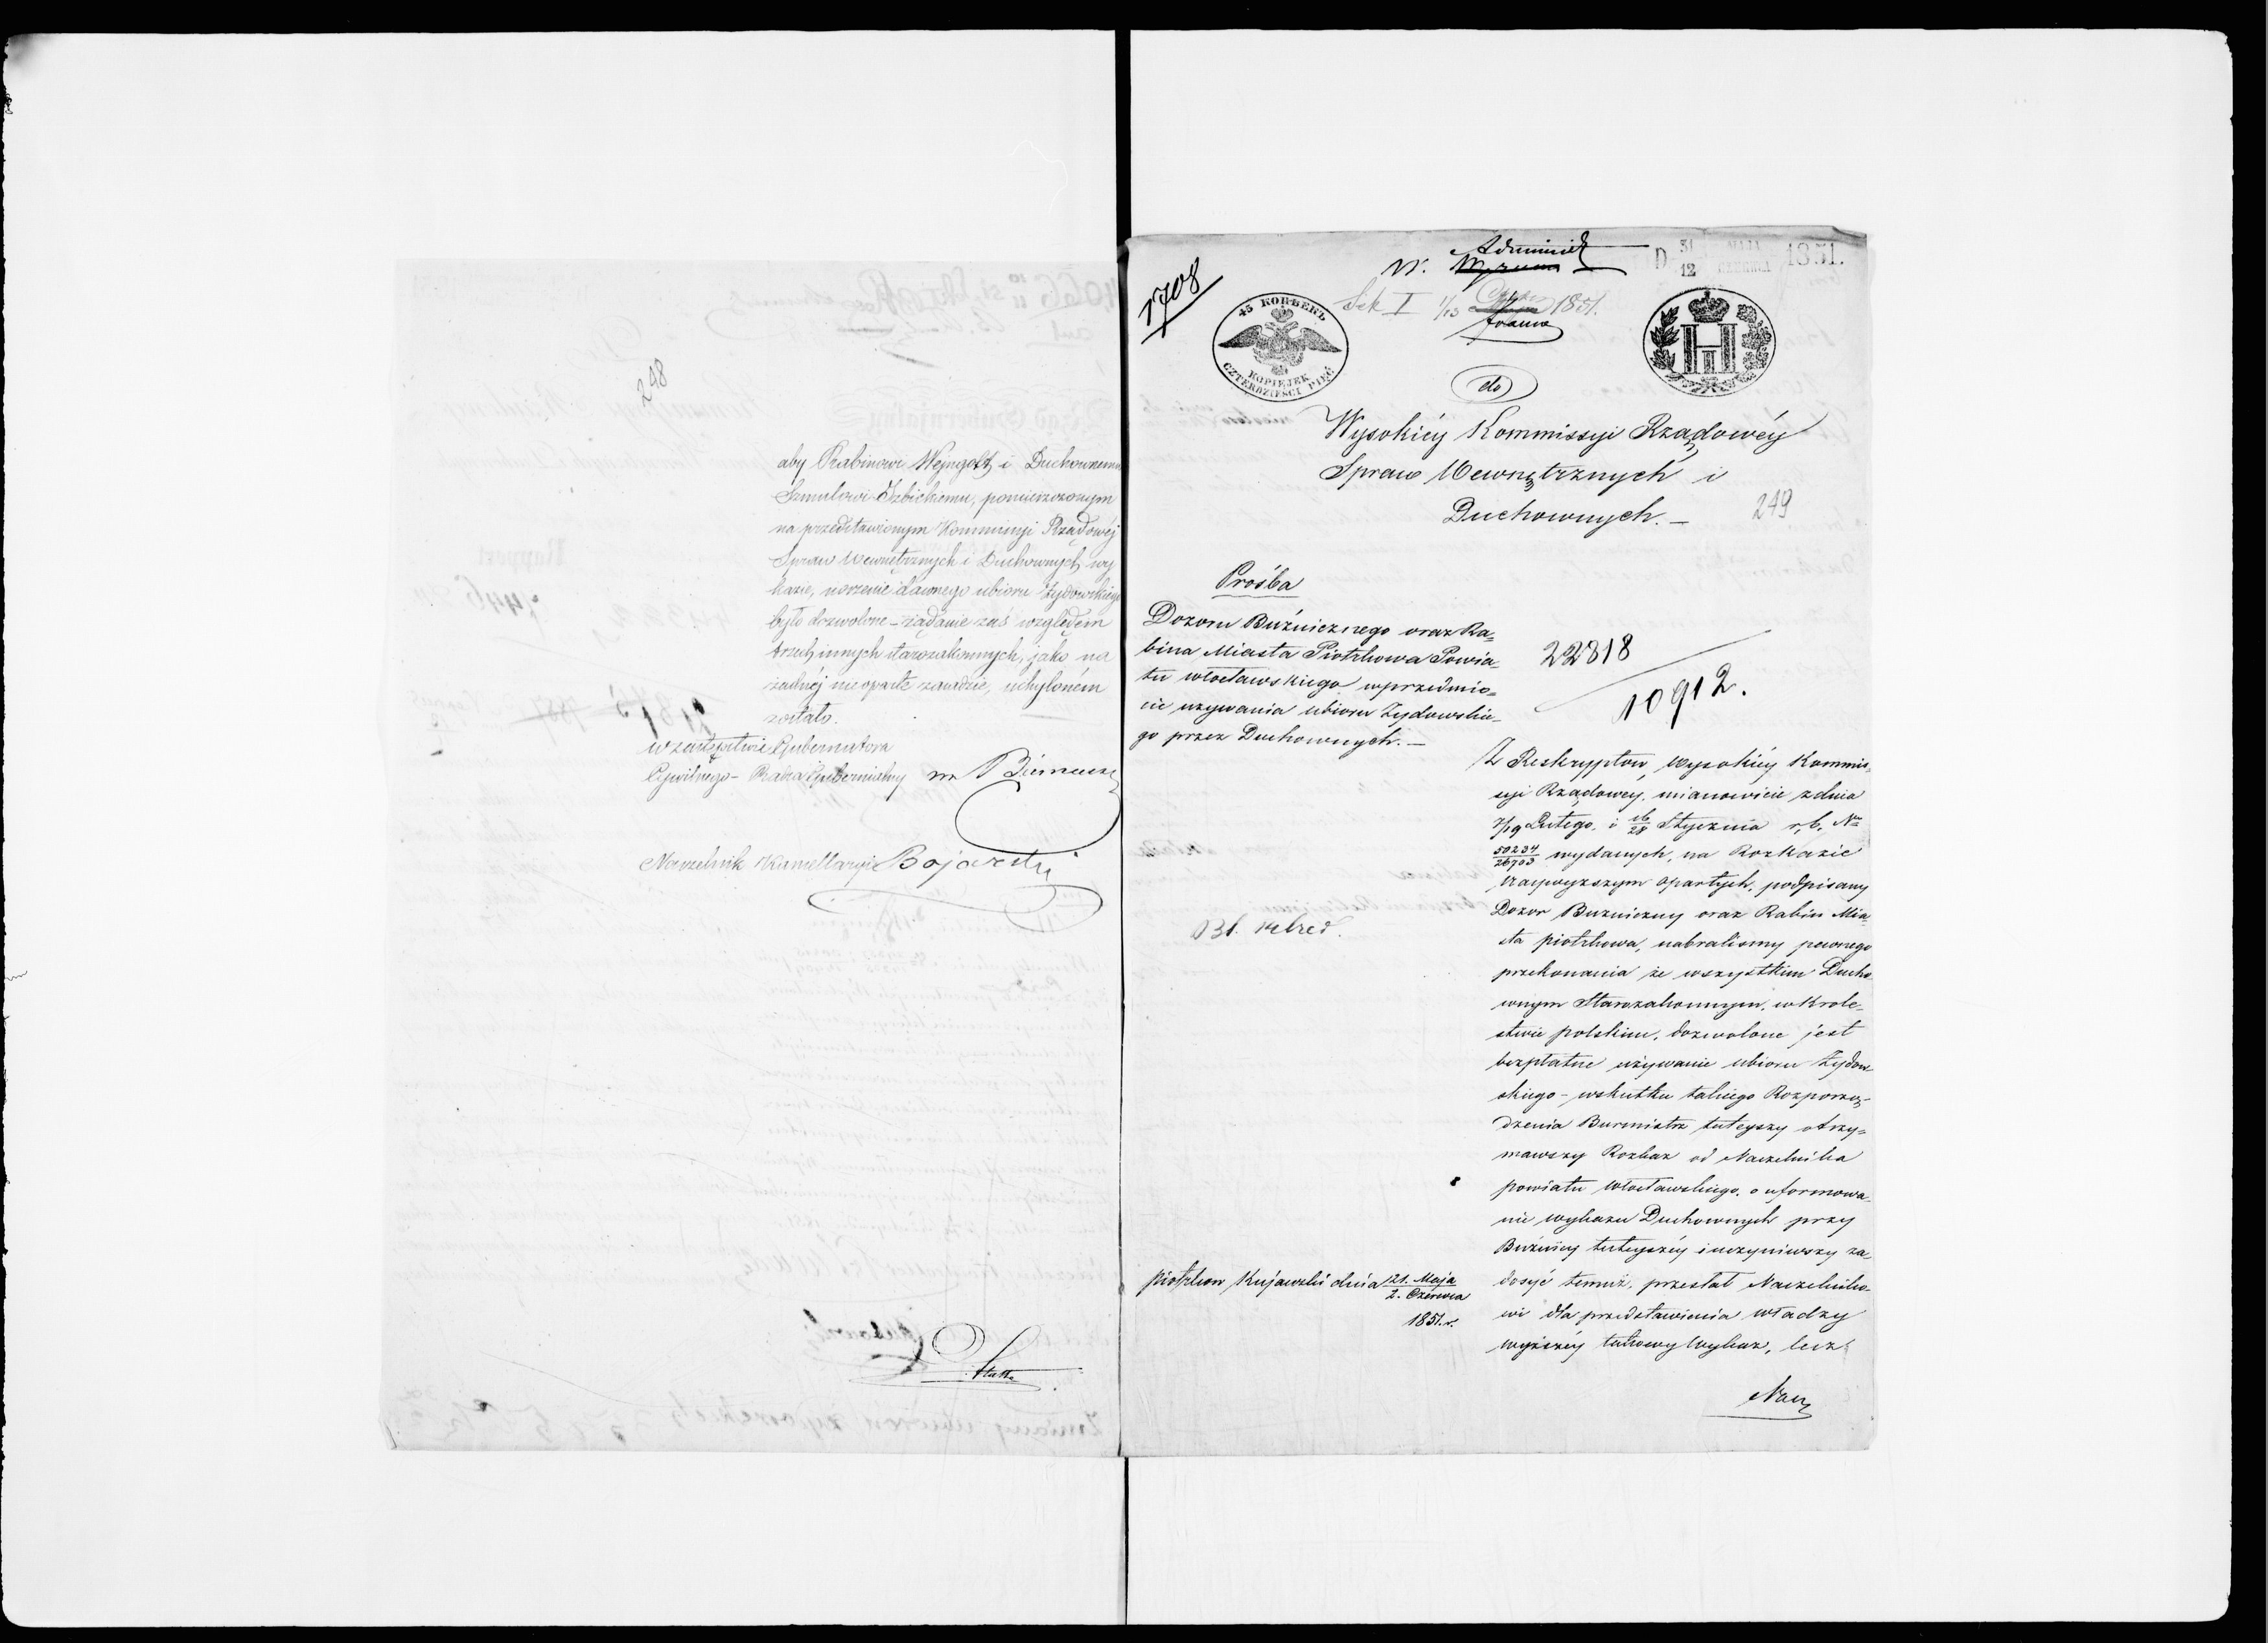 248
aby Rabinowi Wejngott i Duchownemu
Szmulowi Izbickiemu, pomieszczonym
na przedstawionym Kommissyi Rządowej
Spraw Wewnętrznych i Duchownych wy
kazie, noszenie dawnego ubioru Żydowskiego
było dozwolone – żądanie zaś względem
trzech innych starozakonnych, jako na
żadnéj nie oparte zasadzie, uchyloném
zostało.
w zastępstwie Gubernatora
Cywilnego – Radca Gubernialny
Naczelnik Kancellaryi Bojarski
1708
Administ
W.
D 31 MAJA 1851.
12 CZERWCA
Sek I 1/13 1851.
45 КОПѢЕКЪ
KOPIEJEK
CZTERDZIEŚCI PIĘĆ
do
Wysokiéy Kommissyi Rządowéy
Spraw Wewnętrznych i
Duchownych. –
249
Prośba
Dozoru Bużnicznego oraz Ra=
bina Miasta Piotrkowa Powia=
tu włocławskiego w przedmio=
cie używania ubioru Żydowskie=
go przez Duchownych. –
22818
10912.
Z Reskryptow, Wysokiéy Kommis=
syi Rządowey, mianowicie z dnia
7/19 Lutego, i 16/28 Stycznia r, b, Nro
50234/26703 wydanych, na Rozkazie
Naywyższym opartych, podpisany
Dozor Bużniczny oraz Rabin Mia=
sta piotrkowa, nabraliśmy pewnego
przekonania że wszystkim Ducho
wnym Starozakonnym, w Krole=
stwie polskim, dozwolone jest
bezpłatne używanie ubioru Żydow=
skiego – wskutku takiego Rozporzą=
dzenia Burmistrz tuteyszy otrzy=
mawszy Rozkaz od Naczelnika
powiatu włocławskiego, o uformowa=
nie wykazu Duchownych przy
Bużnicy tuteyszéy i uczyniwszy za=
dosyć temuż, przesłał Naczelniko=
wi dla przedstawienia władzy
wyższéy takowy Wykaz, lecz
Nacz
piotrkow Kujawski dnia 21. Maja
2. Czerwca
1851. r.